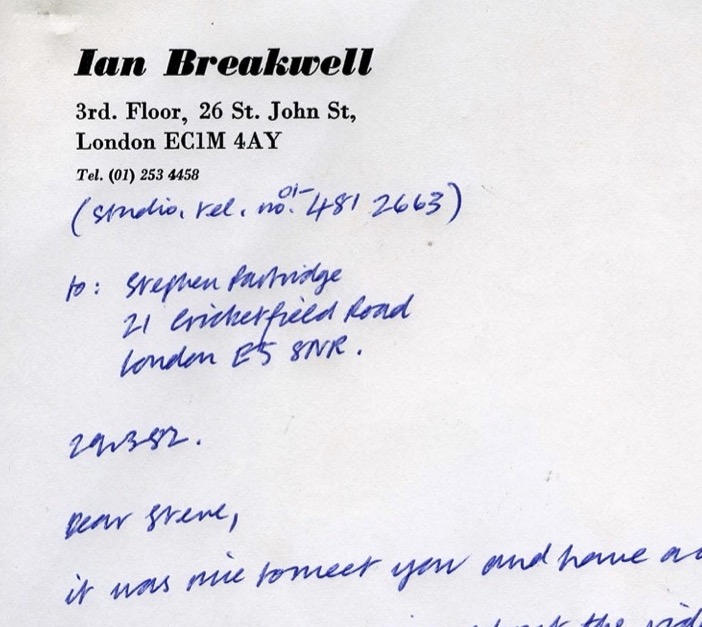 Ian Breakwell
3rd. Floor, 26 St. John St,
London EC1M 4AY
Tel. (01) 253 4458
(studio. tel. no. 01- 481 2663)
to: Stephen Partridge
21 Cricketfield Road
London E5 8NR.
29.3.82.
Dear Steve,
it was nice to meet you and have a
the